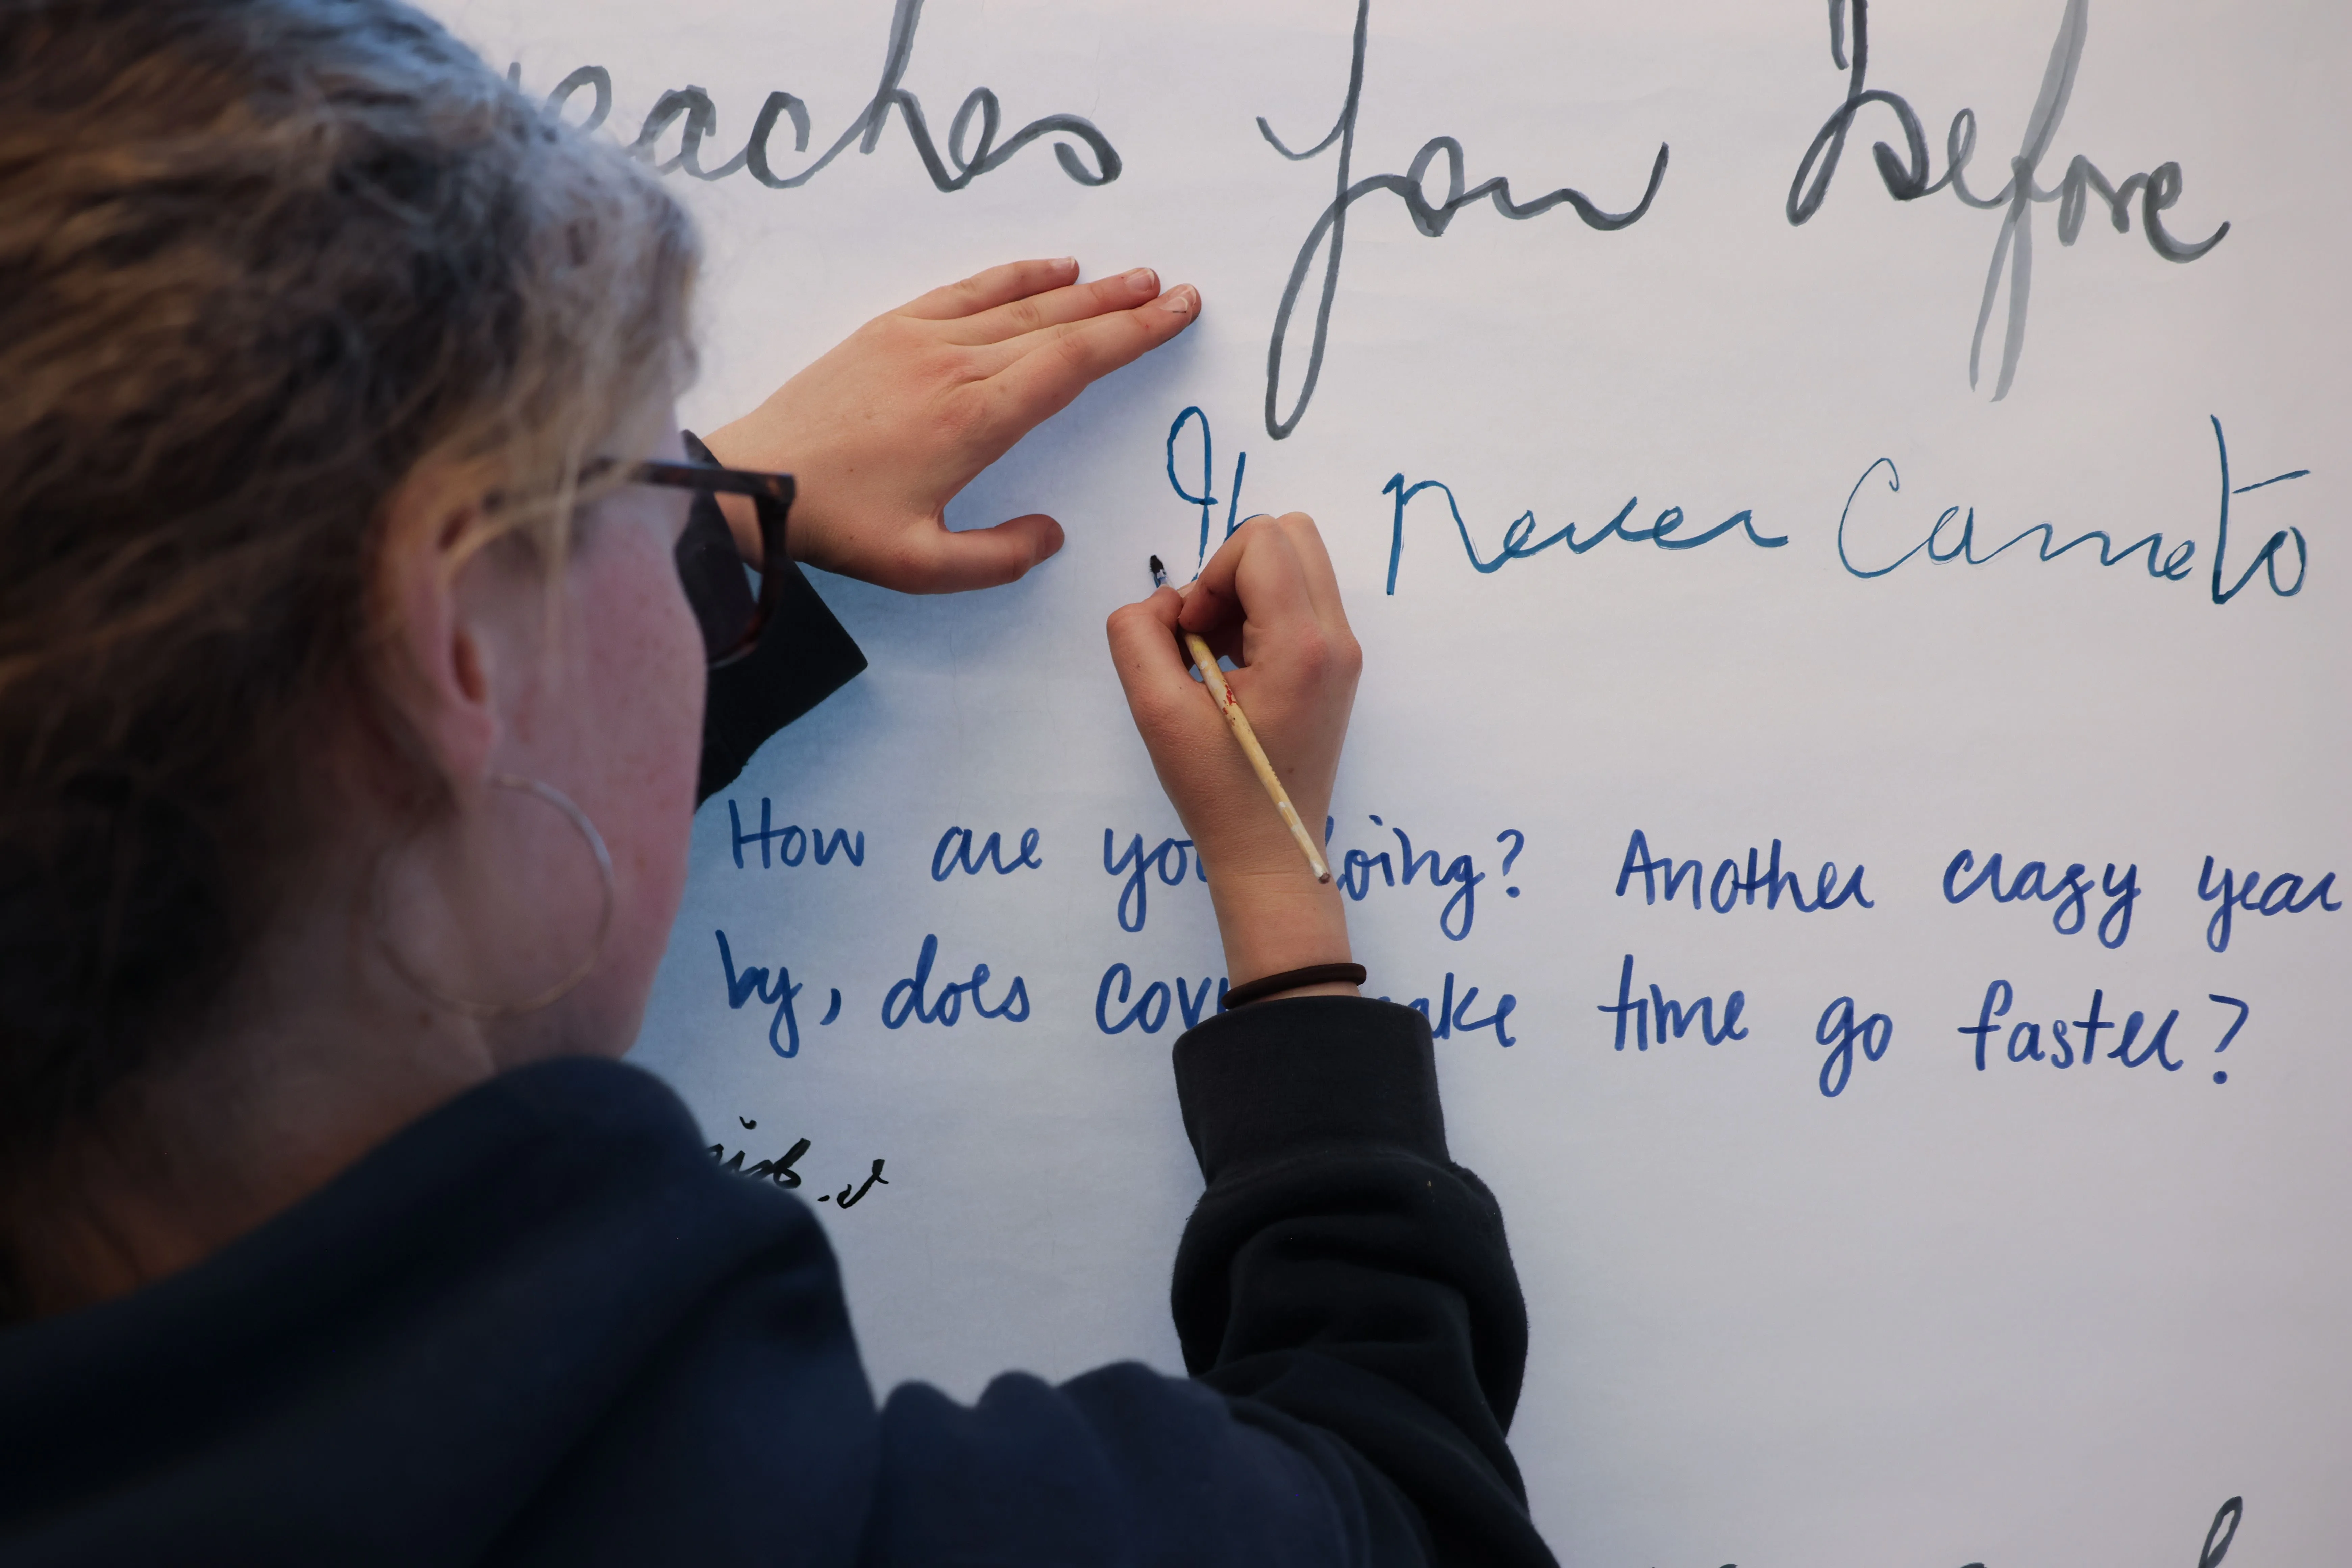 reaches you before
It never came to
How are you doing? Another crazy year
by, does make time go faster?